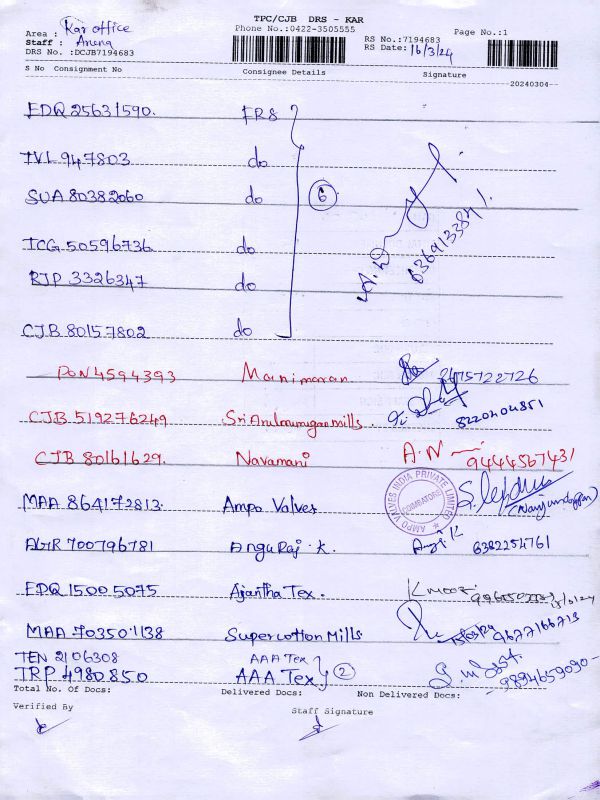 TPC/CJB DRS - KAR
Area : Kar office
Phone No.:0422-3505555
Page No.:1
Staff : Aruna
RS No.:7194683
DRS No. :DCJB7194683
RS Date: 16/3/24
S No Consignment No Consignee Details Signature
20240304
EDQ 25631590. FRS
TVL 947803 do
SUA 80382060 do 6
TCG 50596736 do
RJP 3326347 do
CJB 80157802 do
6369133841
PON 4594393 Manimaran 8675722726
CJB 519276249 Sri Arulmurugan mills. 8220404851
CJB 80161629. Navamani A.N 9444567431
MAA 864172813. Ampo Valves
AMPO VALVES INDIA PRIVATE LIMITED COIMBATORE
AGR 700796781 Anguraj . K. 6382254761
EDQ 15005075 Ajantha Tex.
MAA 703501138 Supercotton Mills 9677166713
TEN 2106308 AAA Tex
TRP 4980850 AAA Tex 2 9894659090
Total No. Of Docs: Delivered Docs: Non Delivered Docs:
Verified By Staff Signature